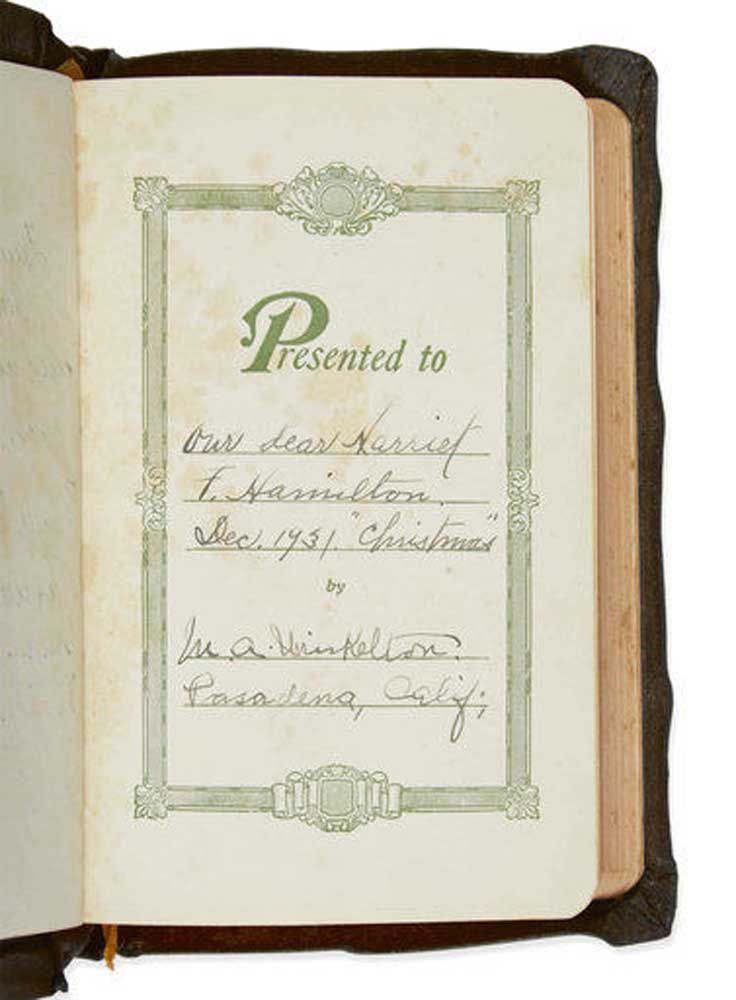 Presented to
Our dear Harriet
F. Hamilton.
Dec. 1931. "Christmas"
by
M. A. Winkelton.
Pasadena, Calif;